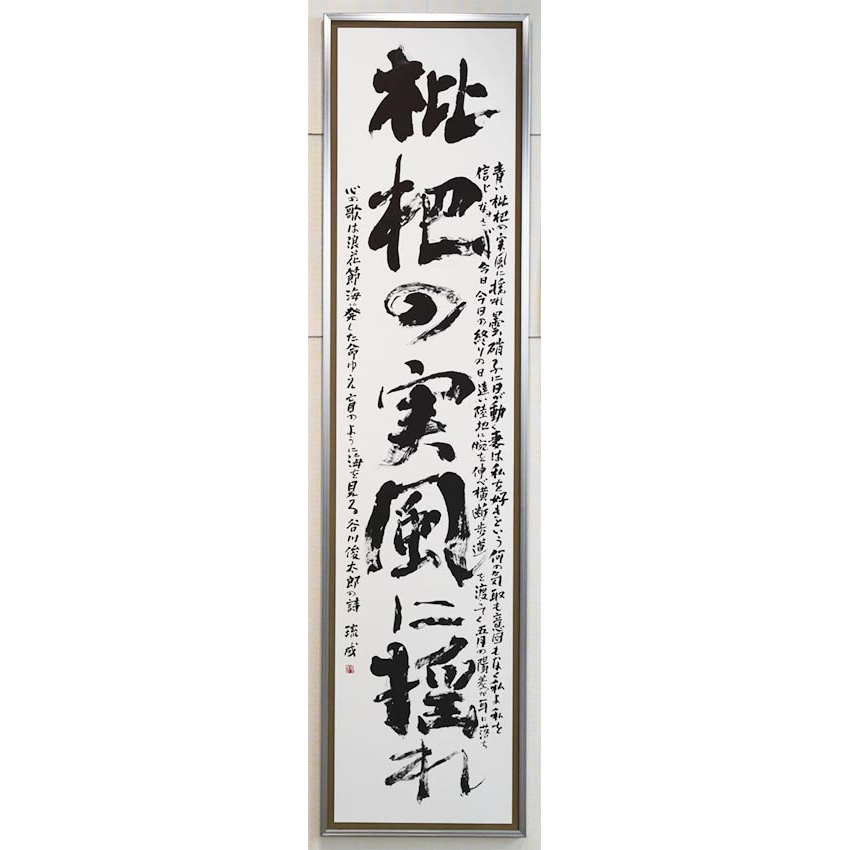 枇杷の実風に揺れ
青い枇杷の実風に揺れ曇硝子に日が動く妻は私を好きという何の気取も意図もなく私よ私を
信じなさい今日今日の終りの日遠い陸地に腕を伸べ横断歩道を渡ってく五月の陽差が耳に落ち
心の歌は浪花節海に発した命ゆえ盲のように海を見る谷川俊太郎の詩 琉成